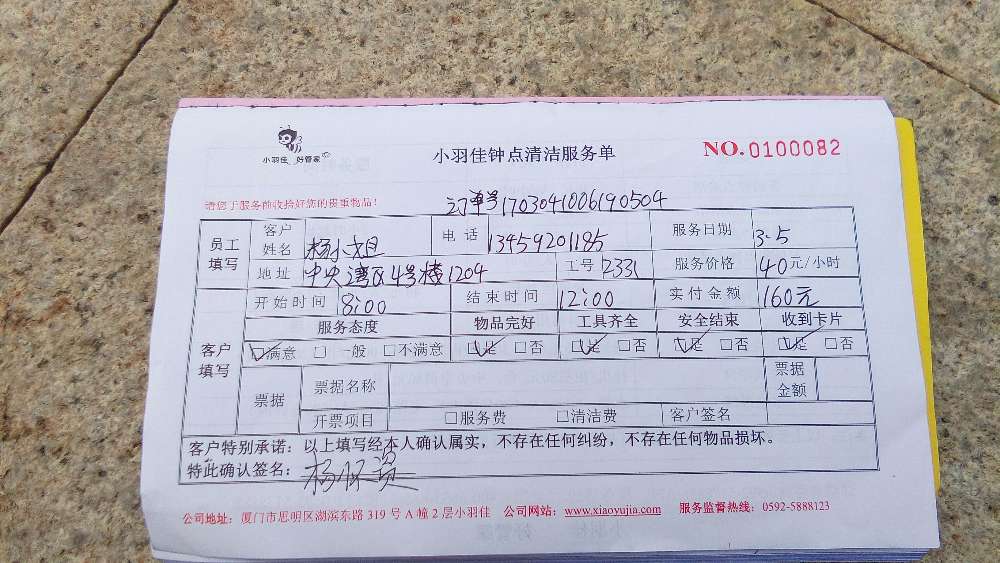 小羽佳 好管家
小羽佳钟点清洁服务单
NO.0100082
请您于服务前收拾好您的贵重物品!
订单号1703041006190504
员工填写 客户姓名 杨小姐 电话 13459201185 服务日期 3.5
地址 中央湾区4号楼1204 工号 2331 服务价格 40元/小时
开始时间 8:00 结束时间 12:00 实付金额 160元
客户填写 服务态度 物品完好 工具齐全 安全结束 收到卡片
☑满意 □一般 □不满意 ☑是 □否 ☑是 □否 ☑是 □否 ☑是 □否
票据 票据名称 票据金额
开票项目 □服务费 □清洁费 客户签名
客户特别承诺：以上填写经本人确认属实，不存在任何纠纷，不存在任何物品损坏。
特此确认签名：杨
公司地址：厦门市思明区湖滨东路 319 号 A 幢 2 层小羽佳 公司网站：www.xiaoyujia.com 服务监督热线：0592-5888123